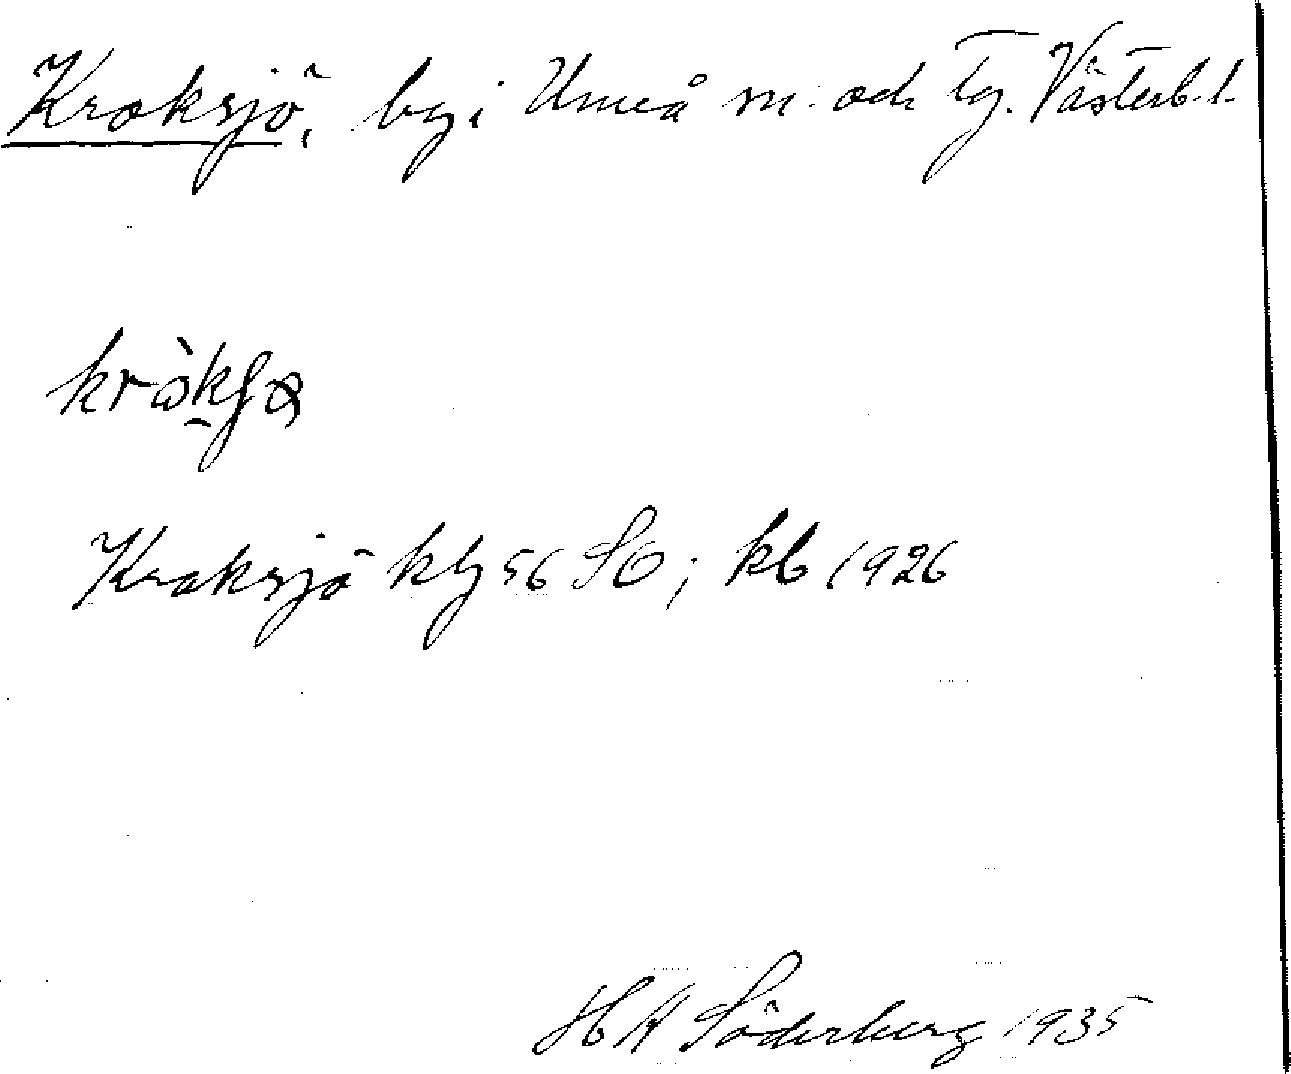 Kroksjö, by i Umeå sn och tg. Västerb. l.
Kroksjö kbg 56 SO; kb 1926
H A Söderberg 1935